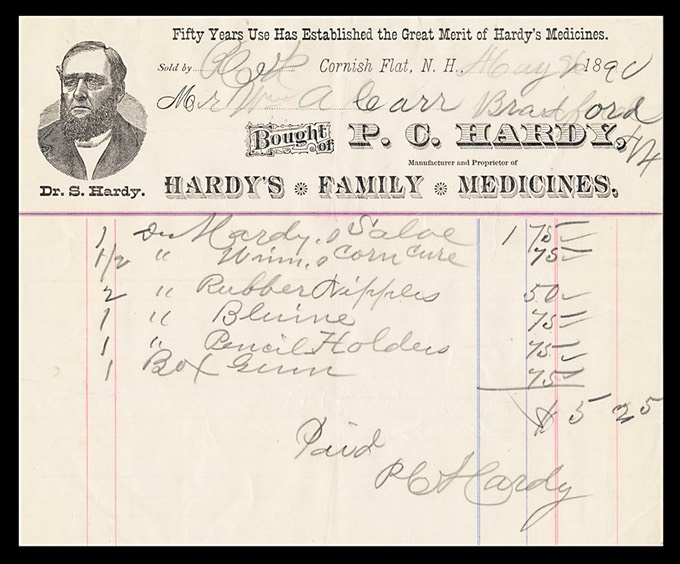 Fifty Years Use Has Established the Great Merit of Hardy's Medicines.
Sold by Cornish Flat, N. H., May 1890
Mr Wm A Carr Bradford
NH
Bought of P. C. HARDY,
Manufacturer and Proprietor of
Dr. S. Hardy.
HARDY'S FAMILY MEDICINES.
1 Dz Hardy,s Salve 1 75
1/2 " Winn,s Corn Cure 75
2 " Rubber Nipples 50
1 " Bluine 75
1 " Pencil Holders 75
1 Box 75
$ 5 25
Paid
P C Hardy